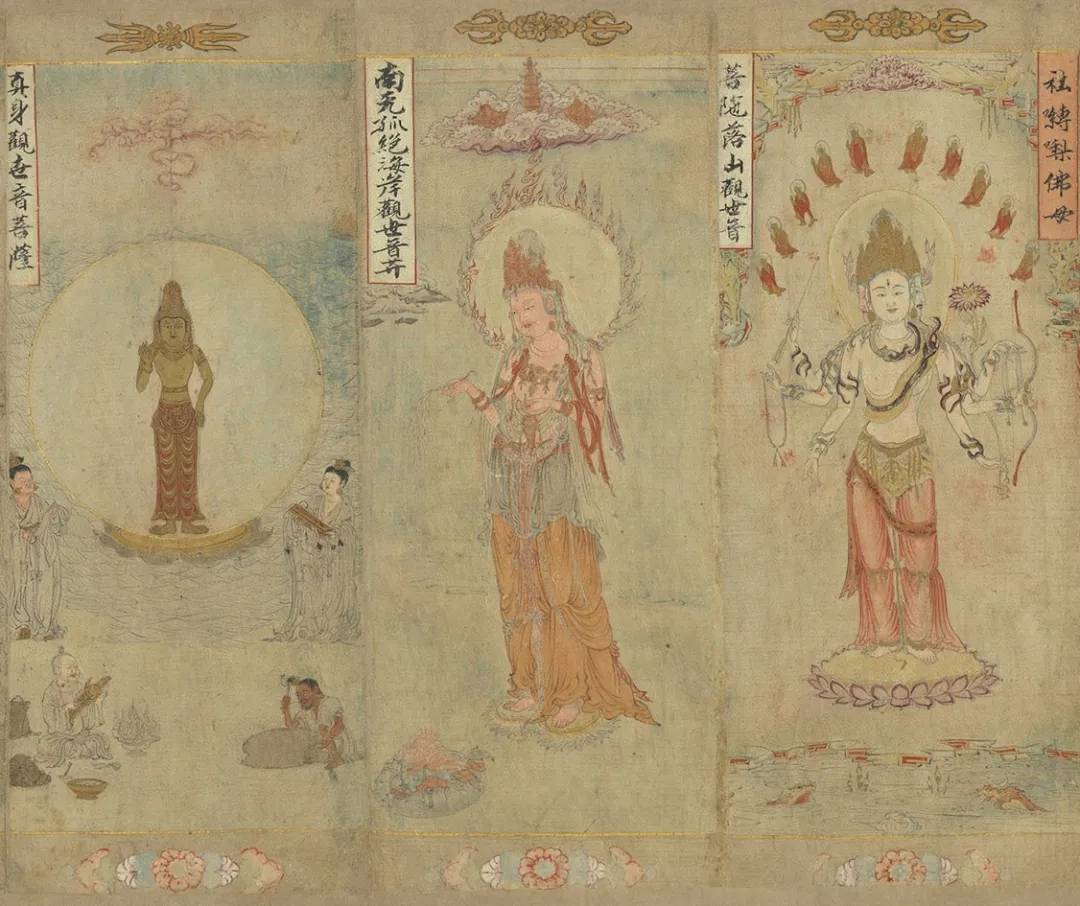 社縛佛母
菩陁落山觀世音
南无孤絕海岸觀世音𦬇
真身觀世音菩薩